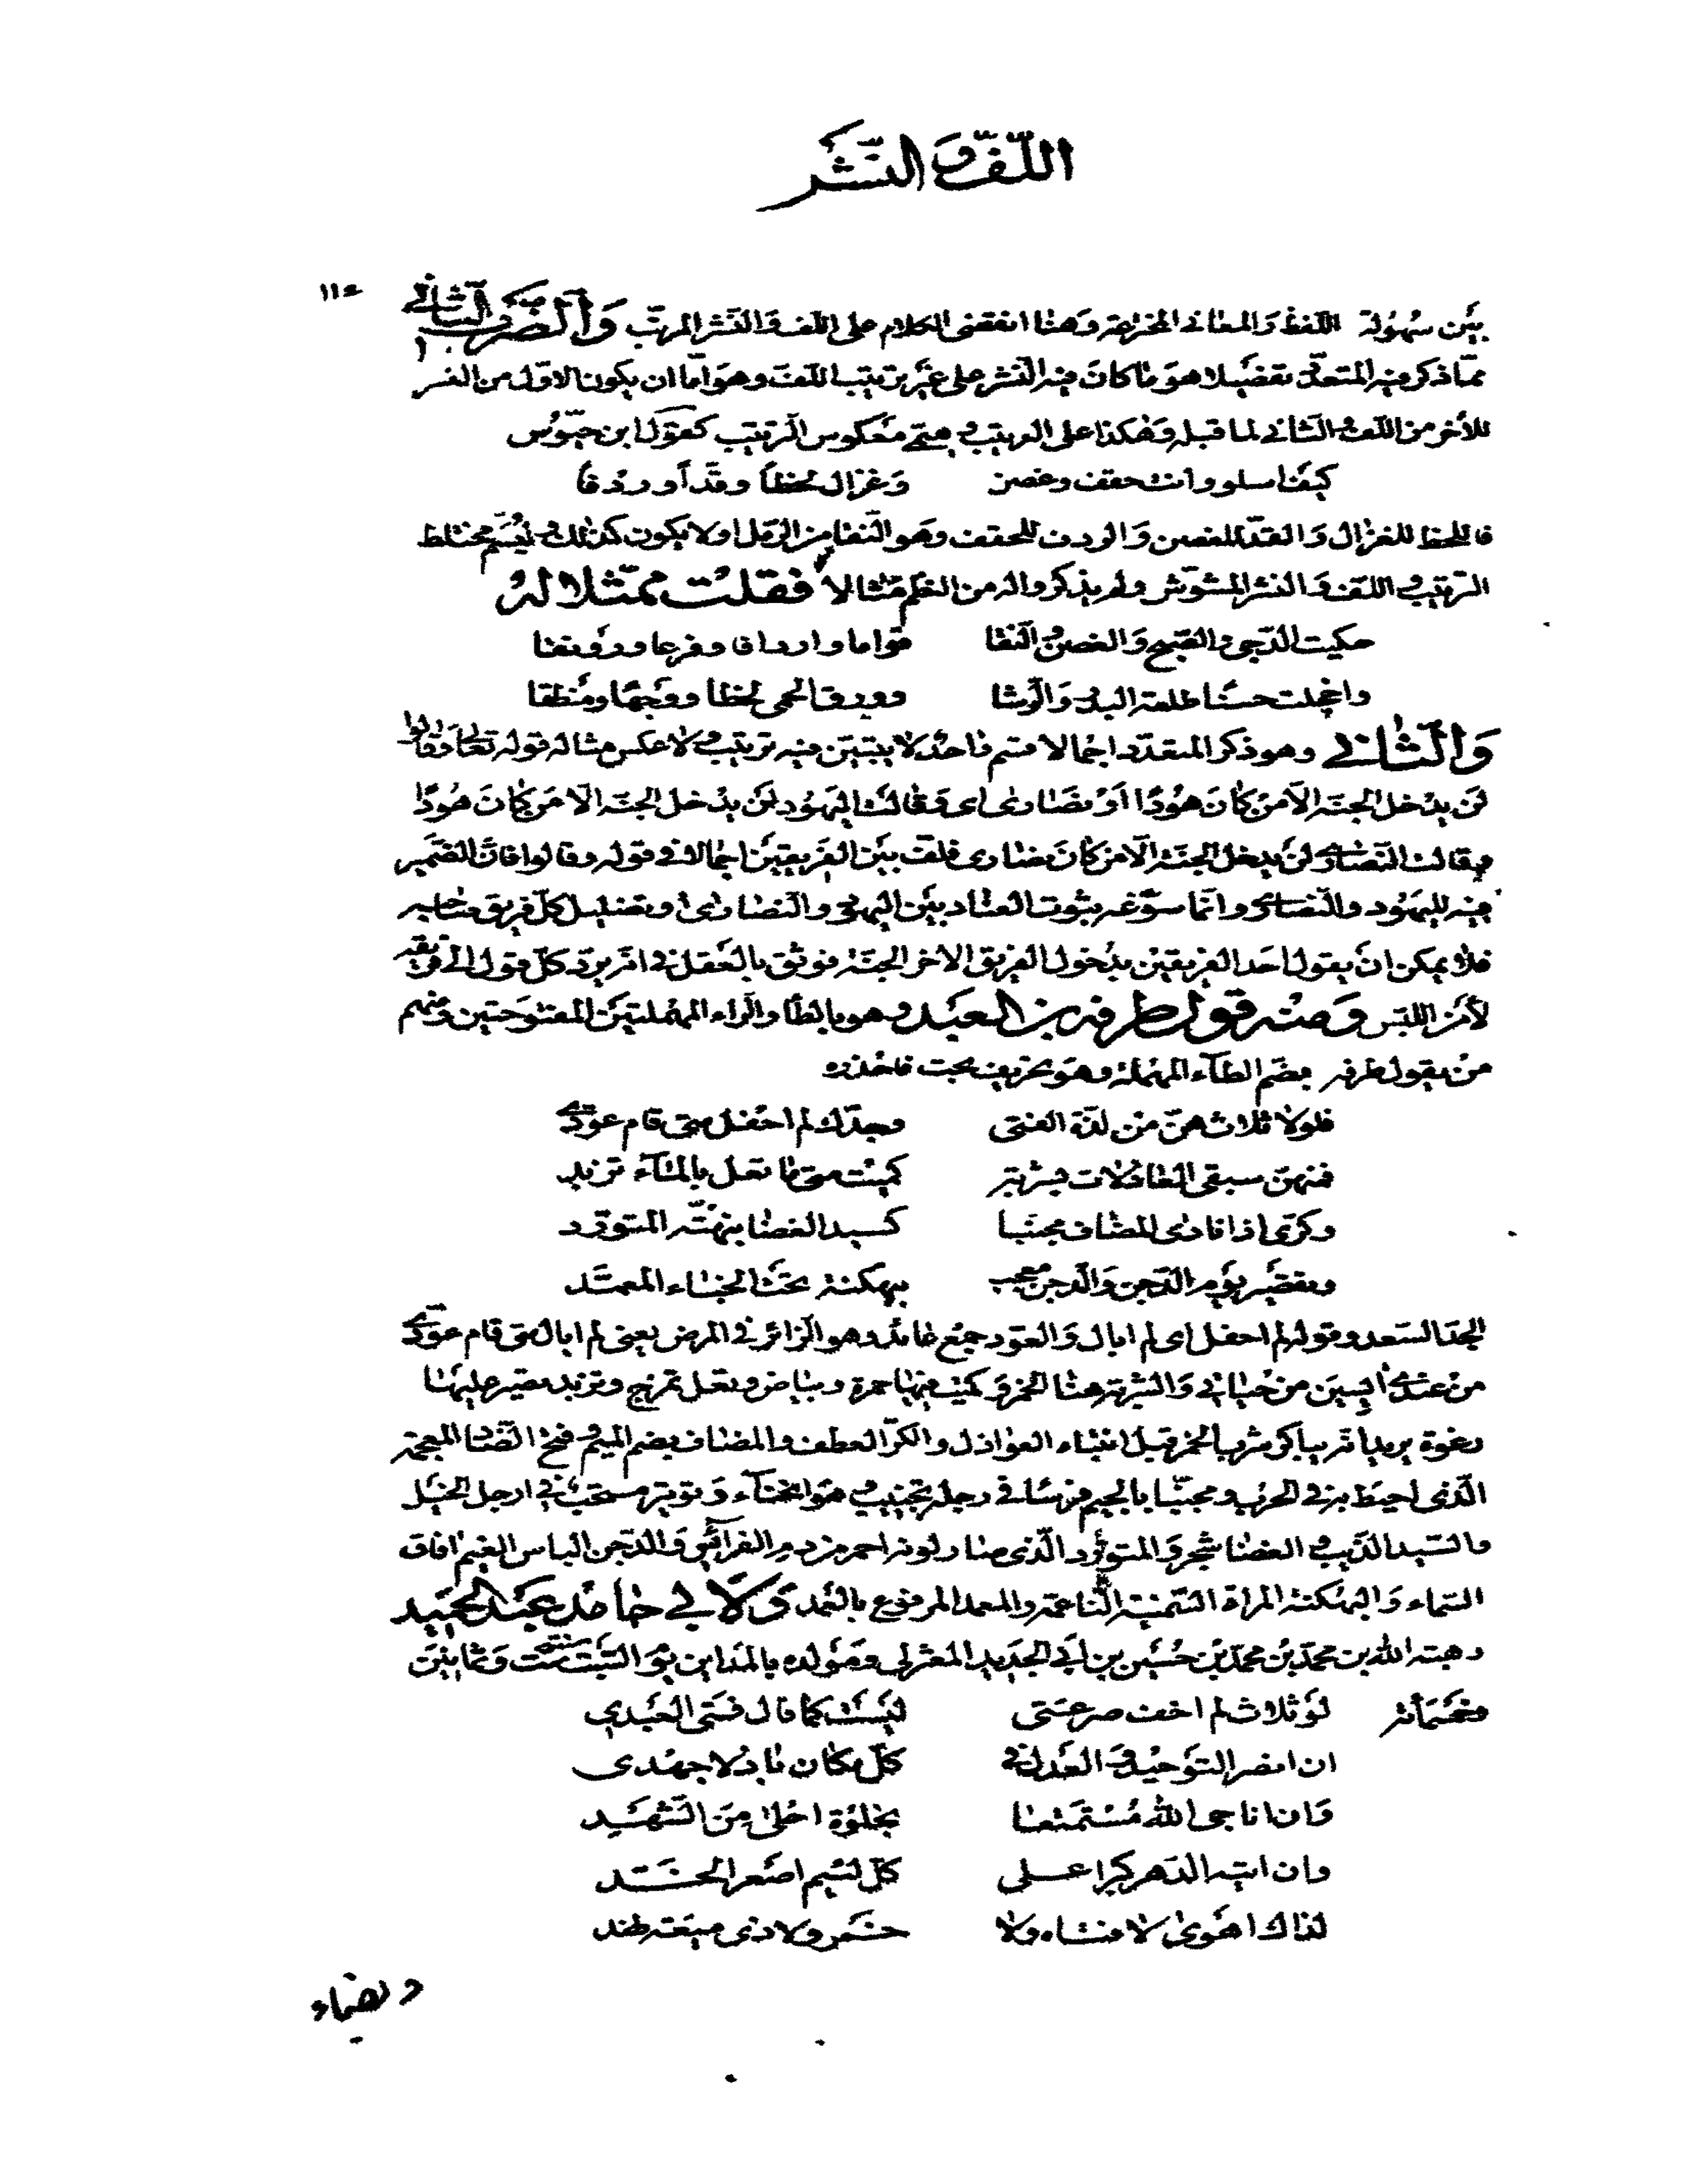 اللّفّ وَ النّشَر
١١٤
بيَن سهُولة اللّفظ وَالمعانى المخترعة وَهنا انقضى الكلام على اللّف وَالنّشر المرتّب وَالضّرب الثانى
ممّا ذكر فيه المتعدّد تفصيلا هوَ ما كانَ فيه النّشر على غيَر ترتيب اللّفّ وهوَ امّا ان يكون الاوّل من النشر
للأخر من اللّف والثّانى لما قبله وَهكذا على الترتيب ويسمّى معَكوس الترتيب كقوَل ابن حيّوُس
كيفَ اسلو وانت حقف وغصن وَغزال لحظاً وقدّاً وردْفاً
فاللّحظ للغزال وَالقدّ للغصن وَالردف للحقف وهَو النّقا من الرّمل اولا يكون كذلك ويُسَمّى مختلط
الترتيب واللّف وَالنشر المشوّش ولم يذكروا له من النظم مثالا فقلت ممثّلا لهُ
حكيت الدّجى والصّبح وَالغصن والنّقا قواما واردافا وفرعا ورَونقا
واخجلت حسنًا طلعة البدر وَالرّشا وورق الحمى لحظا ووَجهًا ومَنطقا
وَالثّانى وهو ذكر المتعدّد اجمالا قسم واحدٌ لا يتبيّن فيه ترتيب ولا عكس مثاله قوله تعالىَ وَقالوا
لنَ يدْخل الجنّة الاّ منْ كانَ هوُدًا اَوْ نصَارى اى وَقالت اليهَود لنَ يدْخل الجنّة الّا مَن كانَ هُودًا
وقالت النّصَارى لنْ يدخل الجنّة الّا من كانَ نصارى فلفّ بيَن الفَريقيَن اجمالا فى قوله وقالوا فانَّ الضّمير
فيه لليهَود والنّصارى وانّما سوّغه ثبوت العناد بيَن اليهود والنّصارى وتضليل كلّ فريق صاحبه
فلا يمكن انْ يقول احَد الفريقيْن بدُخول الفريق الاخر الجنّة فوثق بالعَقل فى انّه يردّ كلّ قول الى فريقه
لأمَن اللبَس وَمنْه قول طرفه بن العبَد وهو بالطّا والرّاء المهْملتيَن المفتوحَتين ومنهم
منْ يقول طرفه بضَم الطآء المهمَلة وهَو تحريف بحت فاحْذره
فلولا ثلاث هنّ منْ لذّة الفتى وجدّك لم احْفل متى قام عوّدى
فمنهنّ سبقى العاذلات بشربة كميْت متى ما تعل بالماء تزبد
وكرّى اذا نادى المضاف مجنّبا كسيد الغضا نبهّته المتورّد
وتقصَير يوَم الدّجن وَالدّجن معجب ببهكنة تحَت الخباء المعمَّد
الجَد السّعد وقوله لم احفل اى لم ابال وَالعوّد جمْع عائد وهو الزائر فى المرض يعنى لم ابال متى قام عوّدى
منْ عندى ايسِينَ من حَياتى وَالشربة هنا الخمر وَكميْت فيها حمرة وسَواد وتعل تمزج وتزبد تصير عليهَا
رغوة يريد انّه يباكر شرب الخمر قبل انتباه العواذل والكرّ العطف والمضاف بضم الميم وفتح الضّاد المعجمة
الّذى احيَط به فى الحرْب ومجنّبا بالجيم فرسا فى رجله تجنيب وهوَ انحنآء وَتوتير مستحَب فى ارجل الخيَل
والسّيد الذّيب والغضا شجر وَالمتورّد الّذى صار لونه احمر من دم الفرآئس وَالدّجن الباس الغيَم افاق
السّماء وَالبهَكنة المراة السّمينة النّاعمة والمعمد المرفوع بالعُمد وَلابي حامد عبَد الحميَد
بن هبة الله بن محمّد بن محمّد بن حُسَين بن ابى الحديد المعتزلى وموَلده بالمدَاين يوَم السّبت سنة ستّ وَثمانيَن
وخمَسمائة لوَ ثلاث لم اخف صرعتَى ليسَت كما قال فتَى العَبدي
ان انصر التوَحيد وَالعَدل فى كلّ مكان باذلا جهْدى
وَان اناجى اللّٰه مُسْتمتعا بخلوَة احْلى مِنَ الشّهَد
وان اتيه الدّهر كبرا عـلى كلّ لئيم اصْعر الخـدّ
لذاك اهوَى لا فتاه ولا خمَر ولا ذى ميعَة نهد